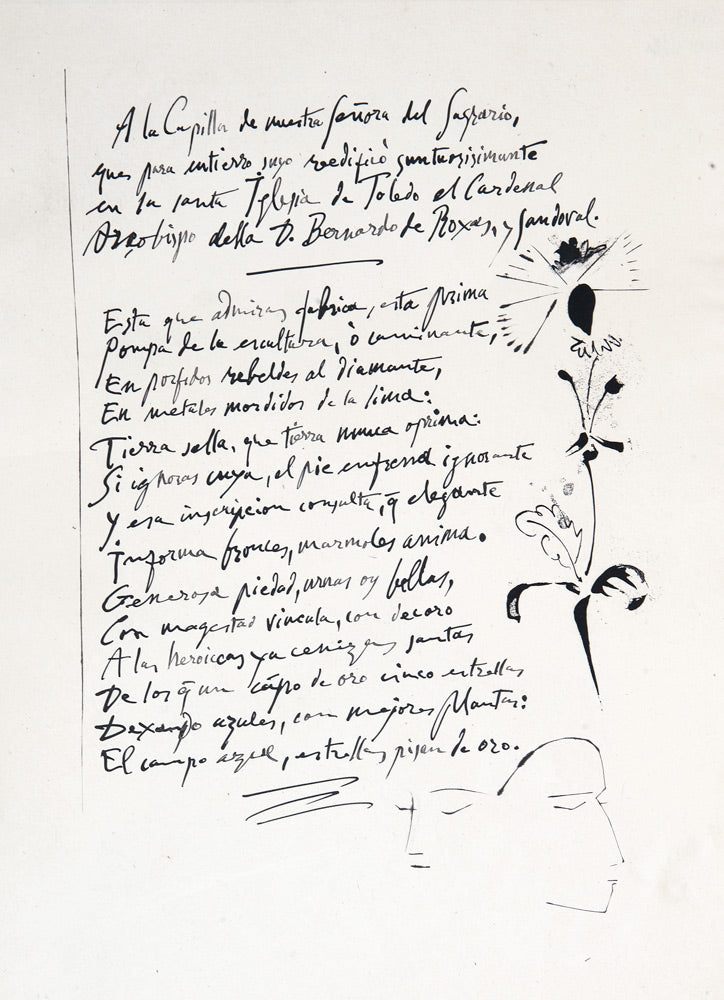 A la Capilla de nuestra señora del Sagrario,
que para entierro suyo reedificò suntuosisimante
en la santa Iglesia de Toledo el Cardenal
Arçobispo della D. Bernardo de Roxas, y Sandoval.
Esta que admiras fabrica, esta prima
Pompa de la escultura, ò caminante,
En porfidos rebeldes al diamante,
En metales mordidos de la lima:
Tierra sella, que tierra nunca oprima:
Si ignoras cuya, el pie enfrena ignorante
Y esa inscripcion consulta, q̄ elegante
Informa bronces, marmoles anima.
Generosa piedad, urnas oy bellas,
Con magestad vincula, con decoro
A las heroiccas ya cenizas santas
De los q̄ un cāpo de oro cinco estrellas
Dexando azules, con mejores Plantas:
El campo azul, estrellas pisan de oro.